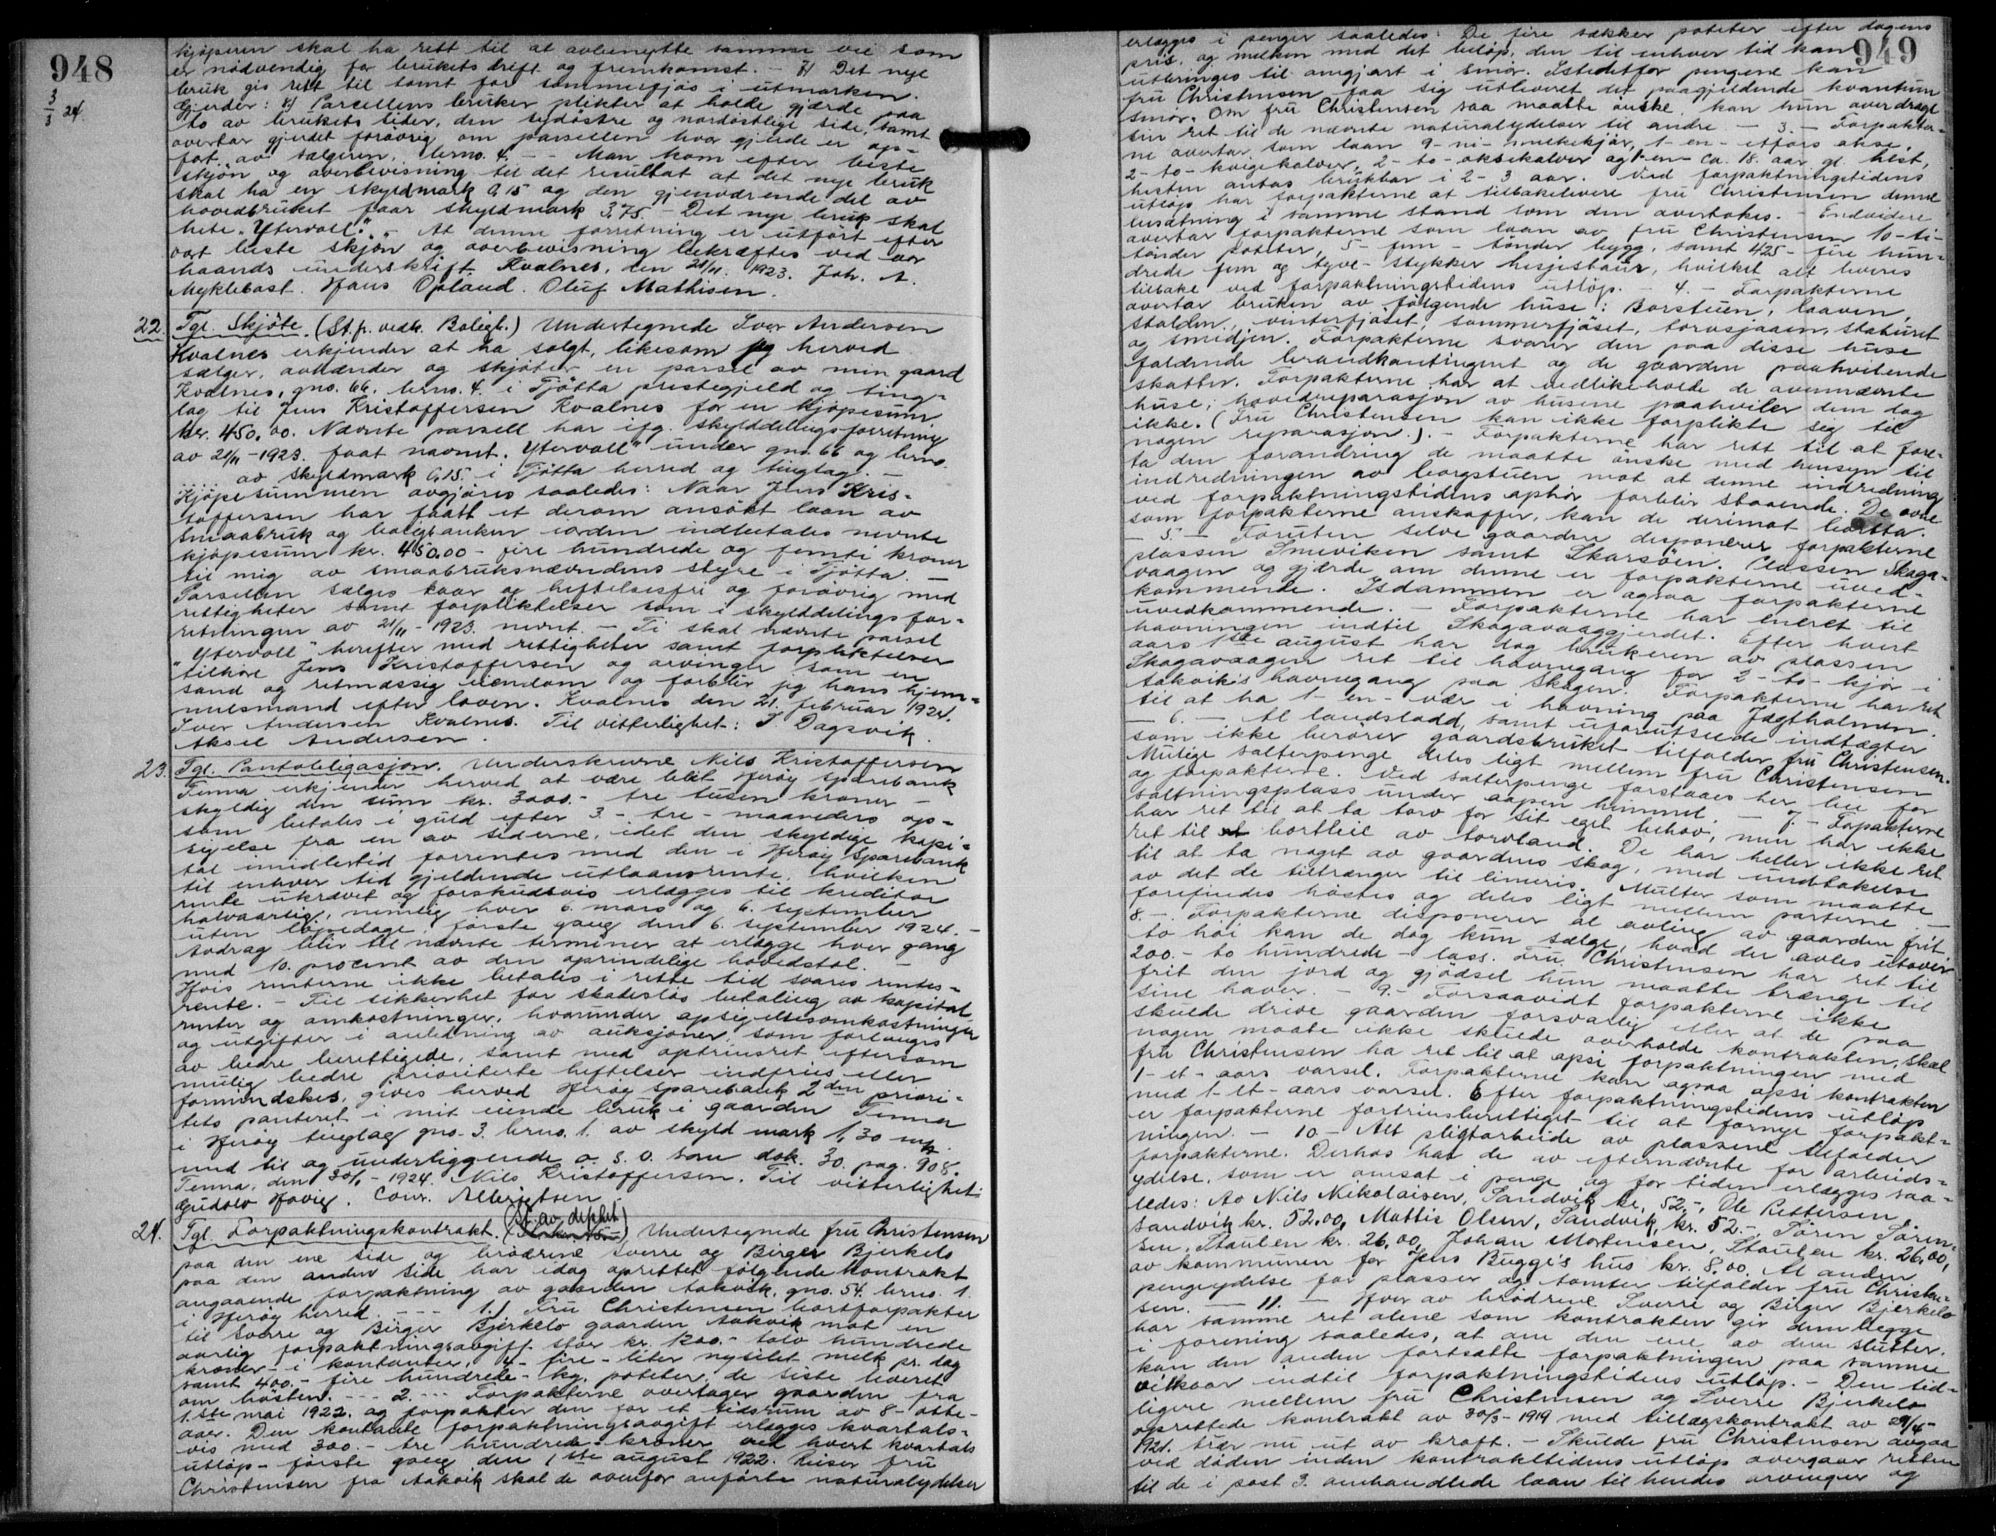 948
3/3 24.
kjøperen skal ha rett til at avbenytte samme vei som
er nødvendig for brukets drift og fremkomst. - 7) Det nye
bruk gis rett til tomt for sommerfjøs i utmarken.
Gjerder: 8) Parcellens bruker plikter at holde gjærde paa
to av brukets sider, den sydøstre og nordøstlige side, samt
overtar gjerdet forøvrig om parsellen hvor gjerde er op-
sat av sælgeren, brno. 4. - - Man kom efter beste
skjøn og overbevisning til det resultat at det nye bruk
skal ha en skyldmark 0,15 og den gjenværende del av
hovedbruket faar skyldmark 3,75. - Det nye bruk skal
hete "Ytervoll". - At denne forretning er utført efter
vort beste skjøn og overbevisning bekræftes ved vor
haands underskrift. Kvalnes, den 21/11. 1923. Joh. A.
Myklebost. Hans Opland. Oluf Mathisen.
22. Tgl. Skjøte. (St.p. vedk. Boligb.) Undertegnede Iver Andersen
Kvalnes erkjender at ha solgt, likesom jeg herved
sælger, avhænder og skjøter en parsel av min gaard
Kvalnes, gno. 66. brno. 4. i Tjøtta prestegjeld og ting-
lag til Jens Kristoffersen Kvalnes for en kjøpesum
kr. 450,00. Nævnte parsell har ifg. skylddelingsforretning
av 21/11-1923. faat navnet "Ytervoll" under gno. 66 og brno.
av skyldmark 0,15. i Tjøtta herred og tinglag. -
Kjøpesummen avgjøres saaledes: Naar Jens Kris-
toffersen har faatt et derom ansøkt laan av
Smaabruk og boligbanken iorden indbetales nævnte
kjøpesum kr. 450,00 - fire hundrede og femti kroner
til mig av smaabruksnævndens styre i Tjøtta. -
Parsellen sælges laar og heftelsesfri og forøvrig med
rettigheter samt forpliktelser som i skylddelingsfor-
retningen av 21/11-1923. nevnt. - Ti skal nævnte parsel
"Ytervoll" herefter med rettigheter samt forpliktelser
tilhøre Jens Kristoffersen og arvinger som en
sand og retmæssig eiendom og forblir jeg hans hjem-
melsmand efter loven. Kvalnes den 21. februar 1924.
Iver Andersen Kvalnes. Til vitterlighet: I. Dagsvik.
Aksel Andersen.
23. Tgl. Pantobligasjon. Underskrevne Nils Kristoffersen
Tenna erkjender herved at være blit Herøy Sparebank
skyldig den sum kr. 3000.- tre tusen kroner -
som betales i guld efter 3.- tre - maaneders op-
sigelse fra en av siderne, idet den skyldige kapi-
tal imidlertid forrentes med den i Herøy Sparebank
til enhver tid gjeldende utlaansrente, hvilken
rente ukrævet og forskudsvis erlægges til kreditor
halvaarlig, nemlig hver 6. mars og 6. september
uten løpedage, første gang den 6. september 1924. -
Avdrag blir til nævnte terminer at erlægge hver gang
med 10. procent av den oprindelige hovedstol. -
Hvis renterne ikke betales i rette tid svares rentes-
rente. - Til sikkerhet for skadesløs betaling av kapital
renter og omkostninger, hvorunder opsigelsesomkostninger
og utgifter i anledning av auksjoner, som forlanges
av bedre berettigede, samt med optrinsret eftersom
mulig bedre prioriterte heftelser indfries eller
formindskes, gives herved Herøy Sparebank 2den priori-
tets panteret i mit eiende bruk i gaarden Tenna
i Herøy tinglag gno. 3. brno. 1. av skyld mark 1,30 mp.
med til og underliggende o. s. v. som dok. 30. pag. 908.
Tenna, den 30/1-1924. Nils Kristoffersen. Til vitterlighet:
Gudolv Hovig. Conr. Albrigtsen.
24. Tgl. Forpaktningskontrakt. (St. av. depkt.) Undertegnede fru Christensen
paa den ene side og brødrene Sverre og Birger Bjerkelo
paa den anden side har idag oprettet følgende kontrakt
angaaende forpaktning av gaarden Aakvik, gno. 54. brno. 1.
i Herøy herred. - - - 1.) Fru Christensen bortforpakter
til Sverre og Birger Bjerkelo gaarden Aakvik mot en
aarlig forpaktningsavgift stor kr. 1200.- tolv hundrede
kroner - i kontanter, 4.- fire - liter nysilet melk pr. dag
samt 400.- fire hundrede - kg. poteter, de siste leveret
om høsten. - - - 2. - - - Forpakterne overtager gaarden fra
1.ste mai 1922. og forpakter den for et tidsrum av 8 - otte -
aar. Den kontante forpaktningsavgift erlægges kvartals-
vis med 300.- tre hundrede - kroner ved hvert kvartals
utløp - første gang den 1.ste august 1922. Reiser fru
Christensen fra Aakvik skal de ovenfor anførte naturalydelser
949
erlægges i penger saaledes: De fire sækker poteter efter dagens
pris. og melken med det beløp, den til enhver tid kan
utbringes til omgjort i smør. Istedetfor pengene kan
fru Christensen faa sig utleveret det paagjeldende kvantum
smør. Om fru Christensen saa maatte ønske kan hun overdrage
sin ret til de nævnte naturalydelser til andre. - 3. - Forpakter-
ne overtar som laan 9 - ni - melkekjør, 1 - en - etaars okse,
2 - to - kvigekalver, 2 - to - oksekalver og 1 - en - ca. 18. aar gl. hest,
hesten antas brukbar i 2 - 3 aar. Ved forpaktningstidens
utløp har forpakterne at tilbakelevere fru Christensen denne
besætning i samme stand som den overtokes. - Endvidere
overtar forpakterne som laan av fru Christensen 10 - ti -
tønder poteter, 5 - fem - tønder bygg, samt 425 - fire hun-
drede fem og tyve - stykker hesjestaur, hvilket alt leveres
tilbake ved forpaktningstidens utløp. - 4. - Forpakterne
overtar bruken av følgende huse: Borstuen, laaven,
stalden, vinterfjøset, sommerfjøset, torvsjaaen, staburet
og smedjen. Forpakterne svarer den paa disse huse
faldende brandkontingent og de gaarden paahvilende
skatter. Forpakterne har at vedlikeholde de avennævnte
huse; hovedreparasjon av husene paahviler dem dog
ikke. (Fru Christensen kan ikke forplikte seg til
nogen reparasjon.). - Forpakterne har rett til at fore-
ta den forandring de maatte ønske med hensyn til
indredningen av borgstuen mot at denne indredning
ved forpaktningstidens ophør forblir staaende. De ovne
som forpakterne anskaffer, kan de derimot bortta.
- 5. - Foruten selve gaarden disponerer forpakterne
plassen Sneviken samt Skarsøen. Plassen Skaga-
vaagen og gjærde om denne er forpakterne uved-
kommende. Isdammen er ogsaa forpakterne
uvedkommende. - Forpakterne har eneret til
havningen indtil Skagavaaggjerdet. Efter hvert
aars 1ste august har dog brukeren av plassen
Skagavaagen ret til havnegang for 2 - to - kjør i
Aakvik's havnegang paa Skagen. Forpakterne har ret
til at ha 1 - en - vær i havning paa Jægtholmen.
- 6. - Al landslodd, samt uforutseede indtægter
som ikke berører gaardsbruket tilfalder fru Christensen.
Mulige salterpenge deles ligt mellem fru Christensen
og forpakterne. Ved salterpenge forstaaes her leie for
saltningsplass under aapen himmel. - 7. - Forpakterne
har ret til at ta torv for sit eget behov, men har ikke
ret til bortleie av torvland. De har heller ikke ret
til at ta noget av gaardens skog, med undtakelse
av det de tiltrænger til limeris. Multer som maatte
forefindes høstes og deles ligt mellem parterne. -
8. - Forpakterne disponerer al avling av gaarden frit,
to høi kan de dog kun sælge, hvad der avles utover
200.- to hundrede - lass. Fru Christensen har ret til
frit den jord og gjødsel hun maatte trænge til
sine haver. - 9. - Forsaavidt forpakterne ikke
skulde drive gaarden forsvarlig eller at de paa
nogen maate ikke skulde overholde kontrakten, skal
fru Christensen ha ret til at opsi forpaktningen med
1 - et - aars varsel. Forpakterne kan ogsaa opsi kontrakten
med 1 - et - aars varsel. Efter forpaktningstidens utløp
er forpakterne fortrinsberettiget til at fornye forpakt-
ningen. - 10 - Alt pligtarbeide av plassene tilfalder
forpakterne. Derhos har de av efternævnte for arbeids-
ydelse, som er omsat i penge og for tiden erlægges saa-
ledes: Av Nils Nikolaisen, Sandvik kr. 52,-, Ole Pettersen
Sandvik kr. 52.00, Mattis Olsen, Sandvik, kr. 52.-, Søren Søren-
sen, Staulen kr. 26,00, Johan Mortensen, Staulen kr. 26,00,
av kommunen for Jens Bugge's hus kr. 8,00. Al anden
pengeydelse for plasser og tomter tilfalder fru Christen-
sen. - 11. - Hver av brødrene Sverre og Birger Bjerkelo
har samme ret alene som kontrakten gir dem begge
i forening saaledes, at om den ene av dem slutter,
kan den anden fortsætte forpaktningen paa samme
vilkaar indtil forpaktningstidens utløp. - Den tid-
ligere mellem fru Christensen og Sverre Bjerkelo
oprettede kontrakt av 30/3-1919 med tillægskontrakt av 29/4-
1921. trær nu ut av kraft. - Skulde fru Christensen avgaa
ved døden inden kontraktstidens utløp overgaar retten
til de i post 3. omhandlede laan til hendes arvinger og